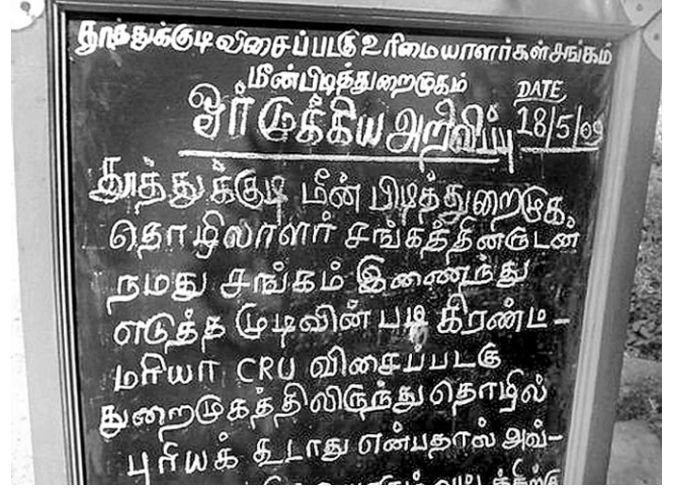 தூத்துக்குடி விசைப்படகு உரிமையாளர்கள் சங்கம்
மீன்பிடித்துறைமுகம்
DATE
ஓர் முக்கிய அறிவிப்பு 18/5/09
தூத்துக்குடி மீன் பிடித்துறைமுக
தொழிலாளர் சங்கத்தினருடன்
நமது சங்கம் இணைந்து
எடுத்த முடிவின் படி கிரண்ட-
மரியா CRU விசைப்படகு
துறைமுகத்திலிருந்து தொழில்
புரியக் கூடாது என்பதால் அவ்-